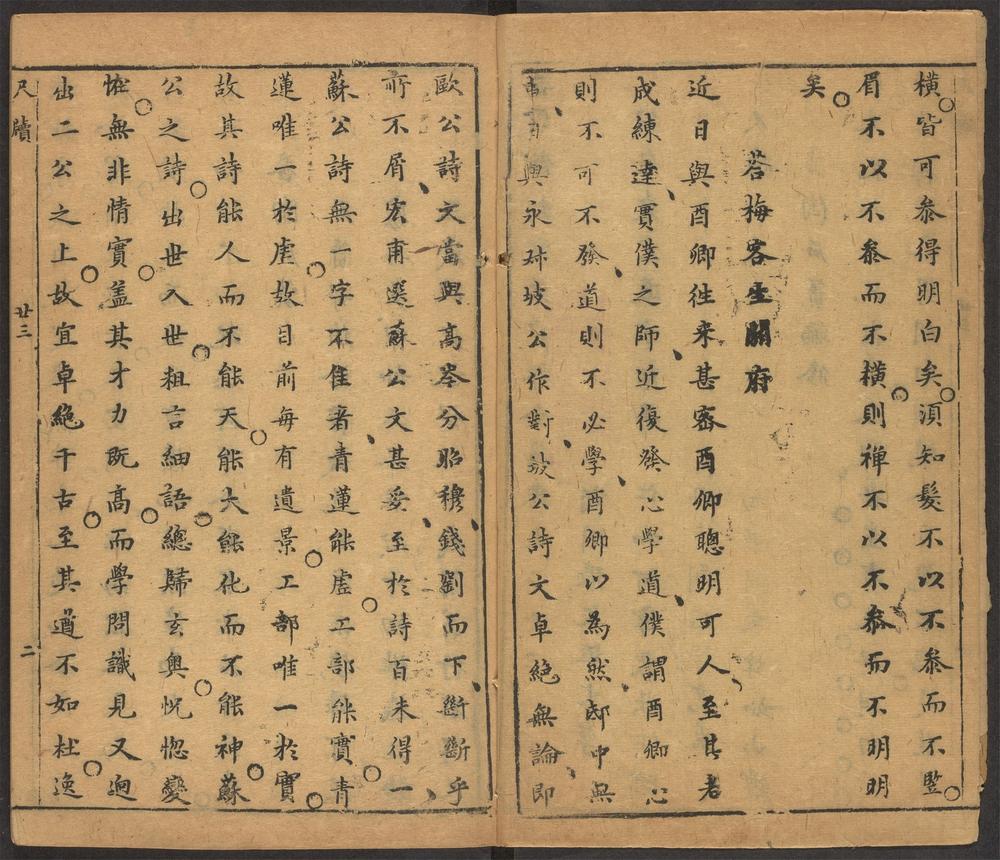 橫皆可參得明白矣須知髮不以不參而不豎
眉不以不參而不橫則禪不以不參而不明明
矣
答梅客生開府
近日與酉卿徃来甚密酉卿聰明可人至其老
成練達實僕之師近復發心學道僕謂酉卿心
則不可不發道則不必學酉卿以為然邸中無
事日與永叔坡公作對坡公詩文卓絕無論即
歐公詩文當與高岑分昭穆錢劉而下斷斷乎
所不屑宏甫選蘇公文甚妥至於詩百未得一
蘇公詩無一字不佳者青蓮能虛工部能實青
蓮唯一於虛故目前每有遺景工部唯一於實
故其詩能人而不能天能大能化而不能神蘇
公之詩出世入世粗言細語總歸玄奧怳惚變
恠無非情實盖其才力既高而學問識見又迥
出二公之上故宜卓絕千古至其遒不如杜逸
尺牘
廿三
二